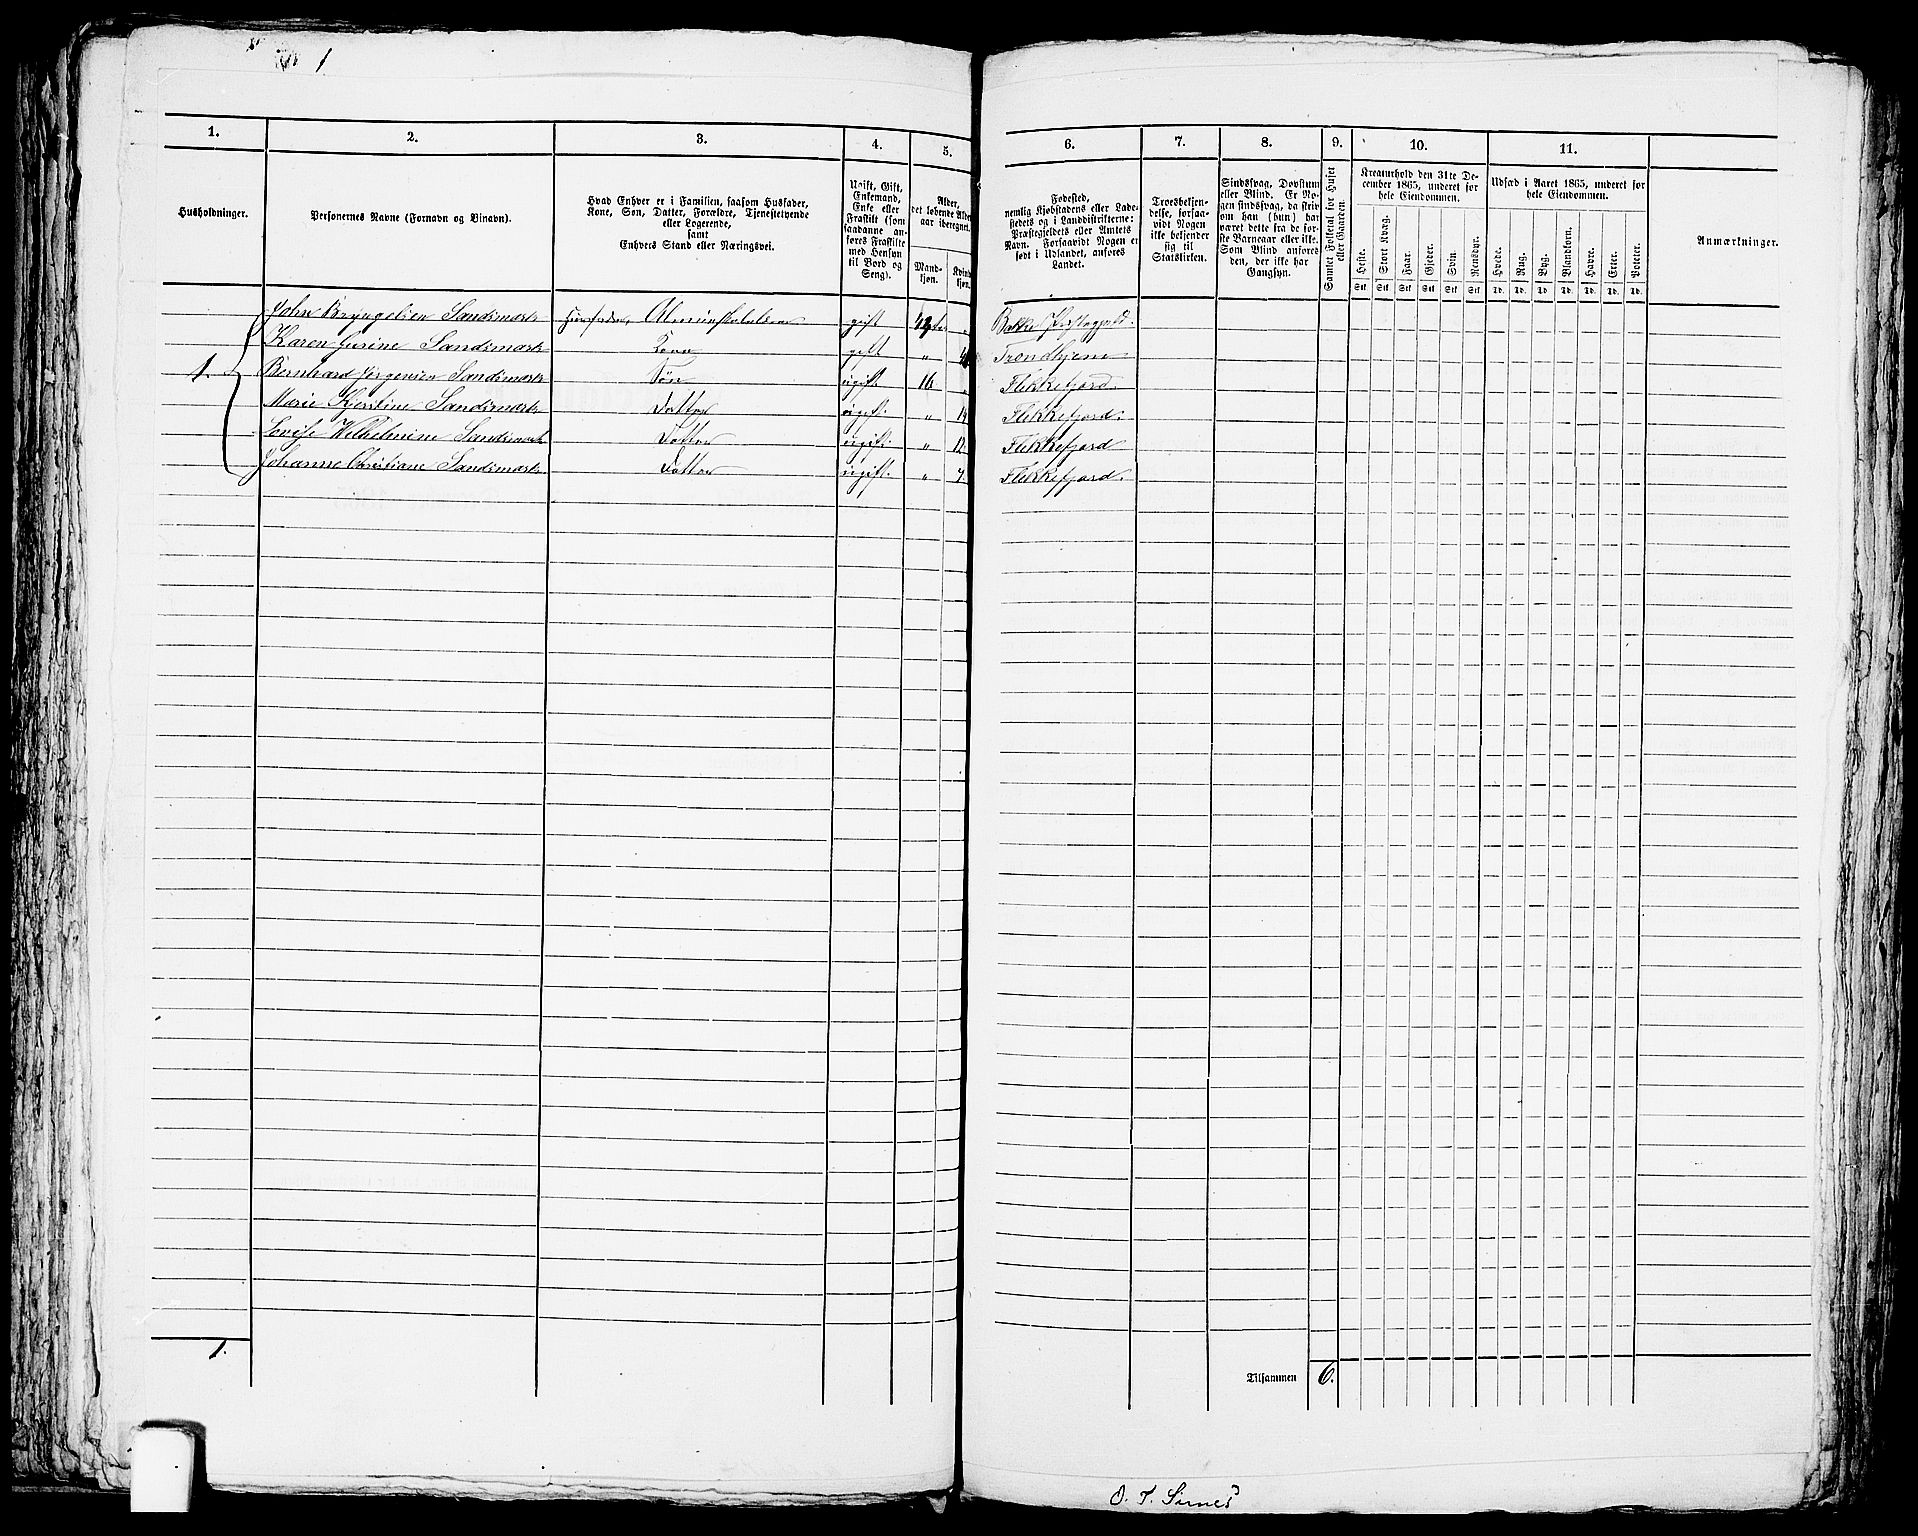 1
1. 2. 3. 4. 5. 6. 7. 8. 9. 10. 11.
Husholdninger.
Personernes Navne (Fornavn og Tilnavn).
Hvad Enhver er i Familien, saasom Husfader,
Kone, Søn, Datter, Forældre, Tjenestetyende
eller Logerende,
samt
Enhvers Stand eller Næringsvei.
Ugift, Gift,
Enkemand,
Enke eller
Fraskilt (som
saadanne an-
føres Fraskilte
med Hensyn
til Bord og
Seng).
Alder,
det løbende Alders-
aar iberegnet.
Mand-
kjøn.
Kvind-
kjøn.
Fødested,
nemlig Kjøbstadens eller Lade-
stedets og i Landdistrikterne:
Præstegjeldets eller Amtets
Navn. Forsaavidt Nogen er
født i Udlandet, anføres
Landet.
Troesbekjen-
delse, forsaa-
vidt Nogen
ikke bekjender
sig til
Statskirken.
Sindssvag, Døvstum
eller Blind. Er No-
gen sindssvag, da skriv
om han (hun) har
været dette fra de før-
ste Barneaar eller ikke.
Som Blind anføres
den, der ikke har
Gangsyn.
Samlet Folketal for Huset
eller Gaarden.
Kreaturhold den 31te De-
cember 1865, underet for
hele Eiendommen.
Heste. Stort Kvæg. Faar. Gjeder. Svin. Rensdyr.
Stk Stk Stk Stk Stk Stk
Udsæd i Aaret 1865, underet for
hele Eiendommen.
Hvede. Rug. Byg. Blandkorn. Havre. Erter. Poteter.
Td. Td. Td. Td. Td. Td. Td.
Anmærkninger.
John Bryngelsen Sandsmark Huusfader, gift Bakke Præstegjeld.
Karen Gurine Sandsmark Kone gift " Trondhjem
1. Bernhard Jørgensen Sandsmark Søn ugift 16 Flekkefjord.
Marie Kjerstine Sandsmark Datter ugift. " 14 Flekkefjord.
Lovise Wilhelmine Sandsmark Datter ugift. " 12 Flekkefjord
Johanne Christiane Sandsmark. Datter ugift. " 7. Flekkefjord.
1.
Tilsammen 6.